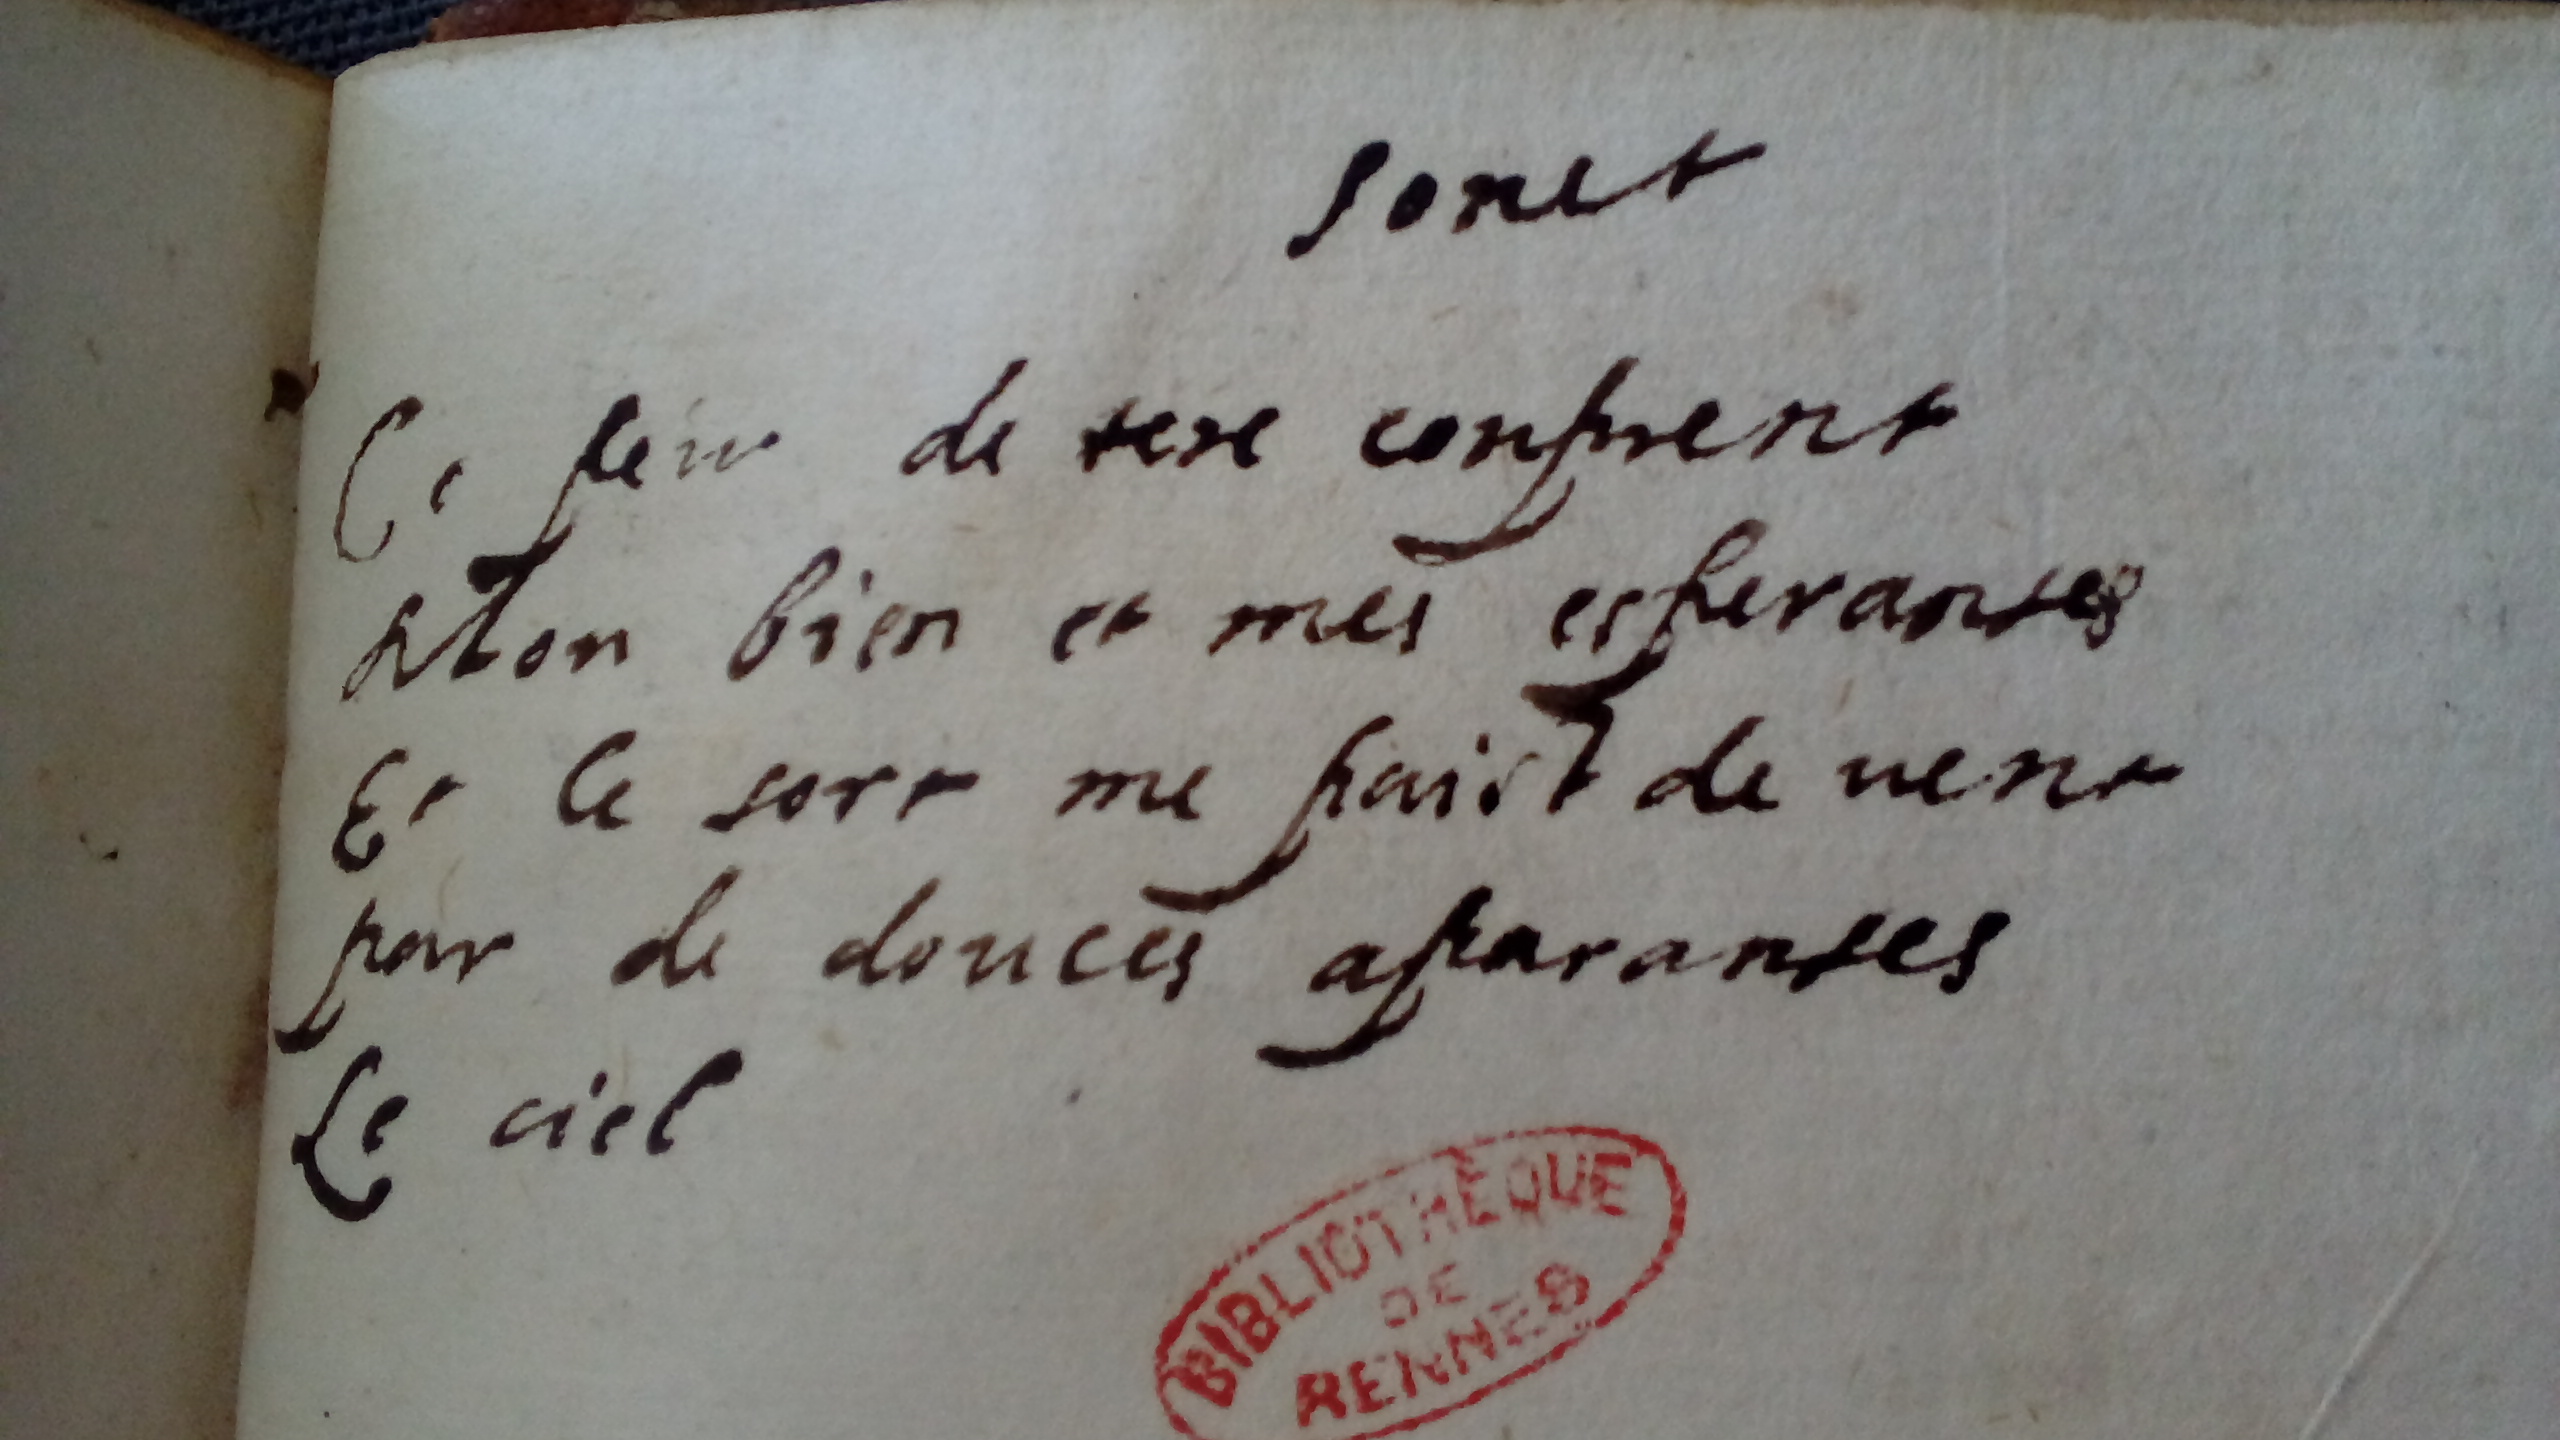 Sonet
Ce peu de tere conprent
Mon bien et mes esperanses
Et le sort me paist de vent
par de douces aparanses
Le ciel
BIBLIOTHÈQUE
DE
RENNES